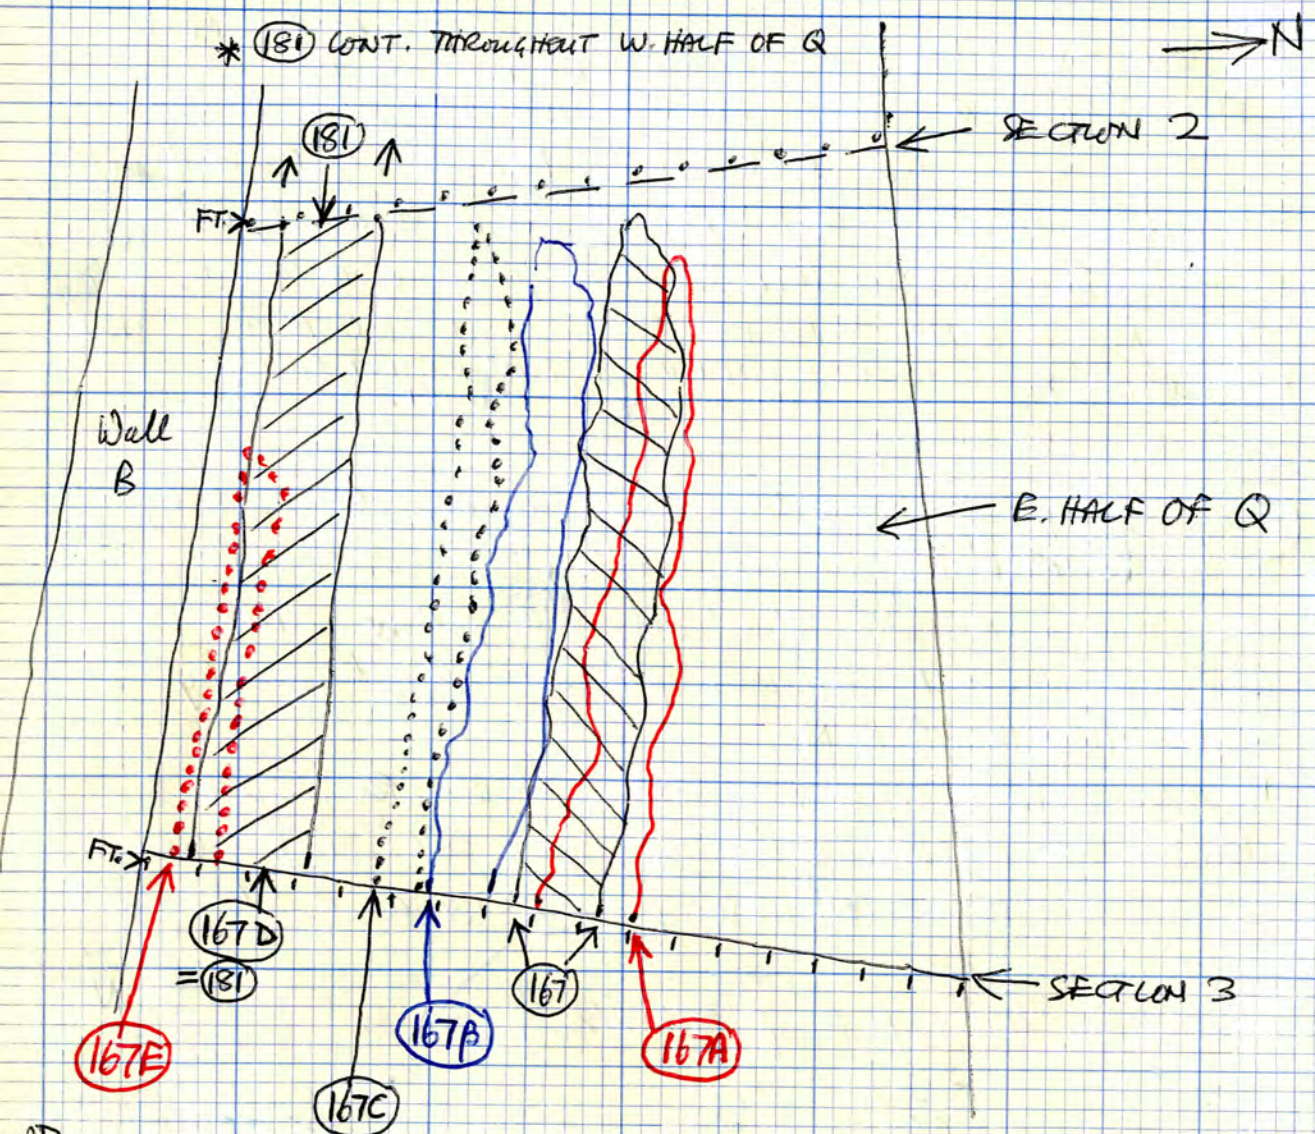 * 181 CONT. THROUGHOUT W. HALF OF Q
N
SECTION 2
181
FT.
Wall
B
E. HALF OF Q
FT.
167D
=181
167
SECTION 3
167E
167B
167A
167C